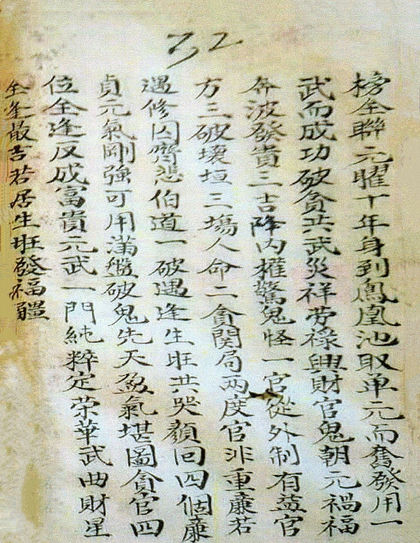 32
榜全聯元曜十年身到鳳凰池取单元而奮發用一
武而成功破貪共武災祥劳祿興財官鬼朝元禍福
奔波發貴三吉降内權驚鬼怪一官從外制有益官
方三破壞垣三塲人命二貪関局两度官非重廉若
遇修囚齊悲伯道一破遇逢生旺共哭顏回四個廉
貞元氣剛強可用滿盤破鬼先天盈氣堪圖貪官四
位全逢反成富貴元武一門純粹定荣華武曲財星
全逢最吉若居生旺發福疆